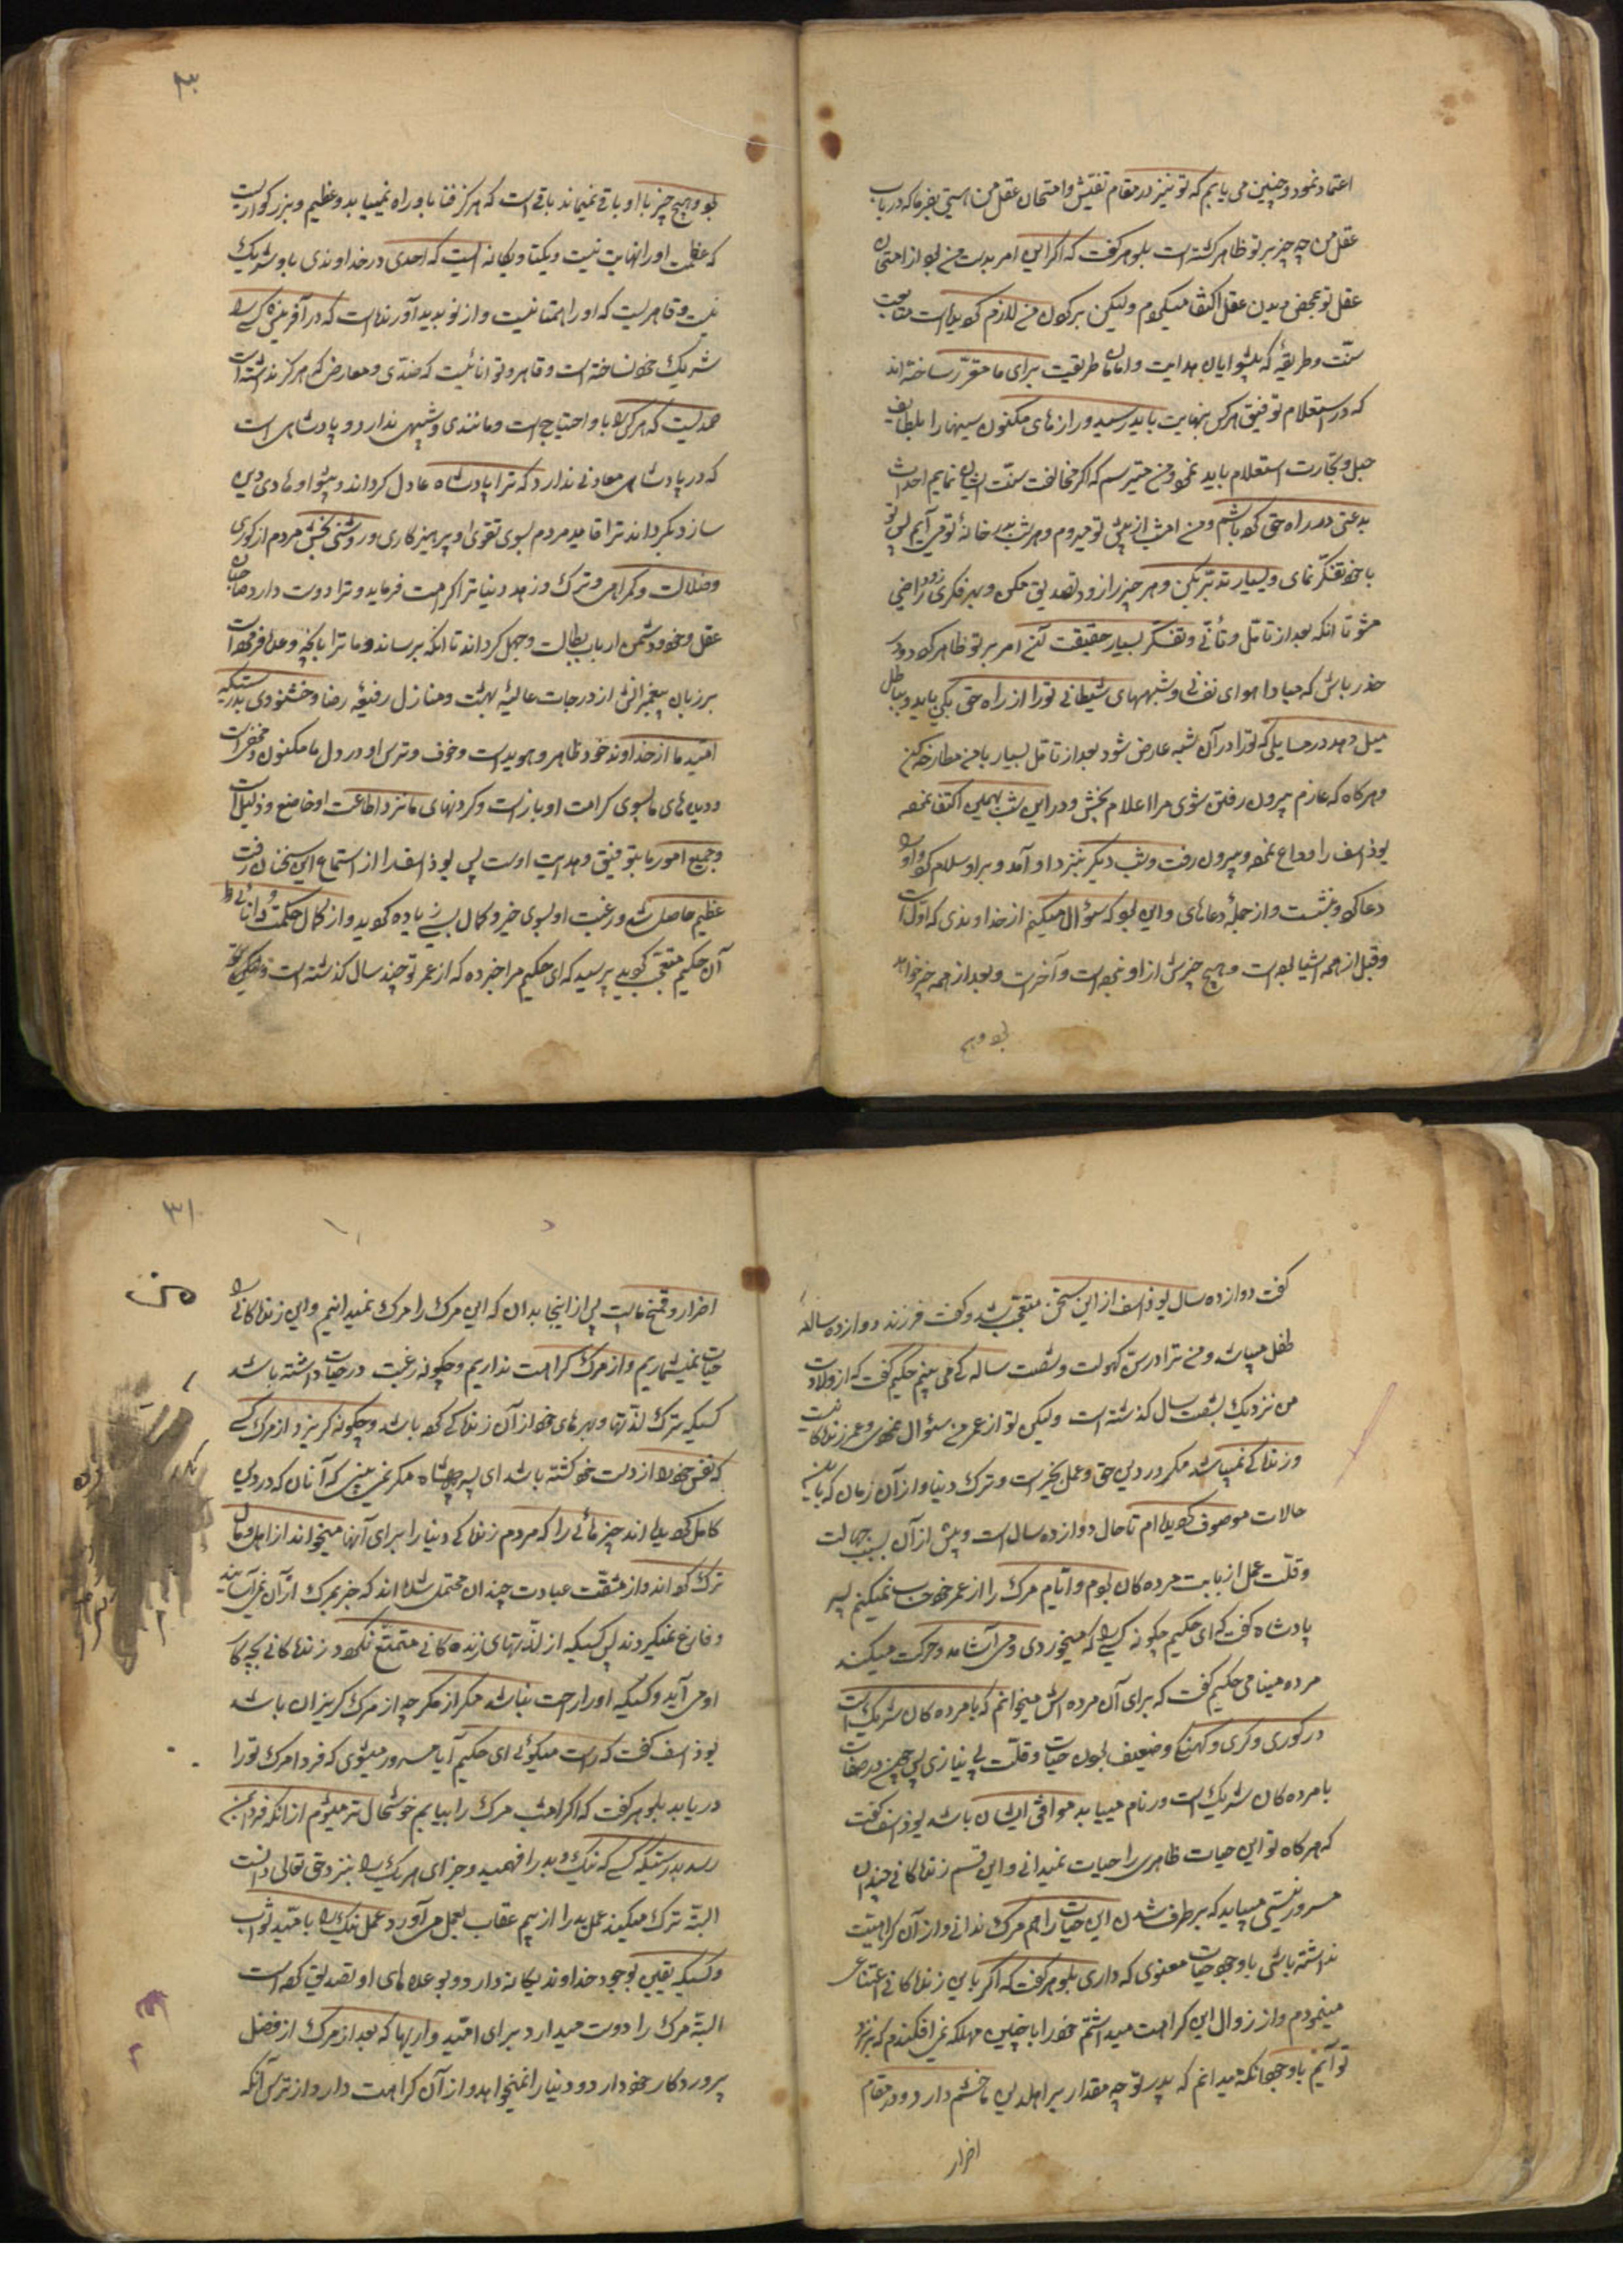 اعتماد نمود و چنین می یابم که تو نیز در مقام تفتیش و امتحان عقل من هستی بفرما که در باب
عقل من چه چیز بر تو ظاهر گشته است بلوهر گفت که اگر این امر بدست من بود از امتحان
عقل تو بمحض دیدن عقل اکتفا میکردم ولیکن بر من لازم گردیده است متابعت
سنّت و طریقهٔ که پیشوایان هدایت و امامان طریقت برای ما مقرّر ساخته اند
که در استعلام توفیق هر کس بنهایت باید رسید و رازهای مکنون سینها را بلطایف
حیل و تجارت استعلام باید نمود و من میترسم که اگر مخالفت سنّت ایشان نمایم احداث
بدعتی در راه حق کرده باشم و من امشب از پیش تو میروم و هر شب بدر خانهٔ تو می آیم پس تو
با خود تفکّر نمای و بسیار تدبّر بکن و هر چیز را زود تصدیق مکن و بهر فکری زود راضی
مشو تا آنکه بعد از تامّل و تأنّی و تفکّر بسیار حقیقت آن امر بر تو ظاهر گردد و
حذر باش که مبادا هوای نفسانی و شبههای شیطانی تو را از راه حق بگرداند و بباطل
میل دهد در مسایلی که تو را در آن شبهه عارض شود بعد از تامّل بسیار با من مطارحه کن
و هرگاه که عازم بیرون رفتن شوی مرا اعلام بخش و در این شب بهمین اکتفا نموده
یوذاسف را وداع نموده و بیرون رفت و شب دیگر بنزد او آمد و بر او سلام کرد و او را
دعا کرد و بنشست و از جملهٔ دعاهای او این بود که سؤال میکنم از خداوندی که اوّل است
و قبل از همه اشیا بوده است و هیچ چیز پیش از او نبوده است و آخر است و بعد از همه چیز خواهد
بود و هیچ
۳۰
بود و هیچ چیز با او باقی نمیماند باقی است که هرگز فنا باو راه نمییابد و عظیم و بزرگواریست
که عظمت او را نهایت نیست و یکتا و یگانه ایست که احدی در خداوندی باو شریک
نیست و قاهریست که او را همتا نیست و از نو پدید آورنده است که در آفرینش کسی را
شریک خود نساخته است و قاهر و توانائیست که ضدّی و معارضی هرگز نداشته است
صمدیست که هر کس را باو احتیاج است و مانندی و شبیهی ندارد و پادشاهی است
که در پادشاهی معاونی ندارد که ترا پادشاه عادل گرداند و پیشوا و هادی دین
سازد و بگرداند ترا قاید مردم بسوی تقوی و پرهیزکاری و روشنی بخش مردم از کوری
و ضلالت و گمراهی و ترک و زهد دنیا ترا کرامت فرماید و ترا دوست دارد صاحبان
عقل و خرد و دشمن ارباب بطالت و جهل گرداند تا آنکه برساند ما و ترا بآنچه وعده فرموده است
بر زبان پیغمبرانش از درجات عالیهٔ بهشت و منازل رفیعهٔ رضا و خشنودی بدرستیکه
امّید ما از خداوند خود ظاهر و هویداست و خوف و ترس او در دل ما مکنون و مخفی است
و دیدهای ما بسوی کرامت او باز است و گردنهای ما نزد اطاعت او خاضع و ذلیل است
و جمیع امور ما بتوفیق و هدایت اوست پس یوذاسف را از استماع این سخنان رقّت
عظیم حاصل شد و رغبت او بسوی خیر و کمال بسی زیاده گردید و از کمال حکمت و دانائی
آن حکیم متعجّب گردید پرسید که ای حکیم مرا خبر ده که از عمر تو چند سال گذشته است حکیم
گفت دوازده سال یوذاسف از این سخن متعجّب شد و گفت فرزند دوازده ساله
طفل میباشد و من ترا در سنّ کهولت و شصت سالگی می بینم حکیم گفت که از ولادت
من نزدیک بشصت سال گذشته است ولیکن تو از عمر من سئوال نمودی و عمر زندگانیست
و زندگی نمیباشد مگر در دین حق و عمل بخیر است و ترک دنیا و از آن زمان که باین
حالات موصوف گردیده ام تا حال دوازده سال است و پیش از آن بسبب جهالت
و قلّت عمل از بابت مرده گان بودم و ایّام مرگ را از عمر خود حساب نمیکنم پسر
پادشاه گفت که ای حکیم چگونه کسی را که میخورد و می آشامد و حرکت میکند
مرده مینامی حکیم گفت که برای آن مرده اش میخوانم که با مرده گان شریک است
در کوری و کری و گنگی و ضعیف بودن حیات و قلّت بی نیازی پس چون در صفات
با مرده گان شریک است در نام میباید موافق ایشان باشد یوذاسف گفت
که هرگاه تو این حیات ظاهری را حیات نمیدانی و باین قسم زندگانی چندان
مسرور نیستی میباید که برطرف شدن این حیات را هم مرگ ندانی و از آن کراهیّت
نداشته باشی با وجود حیات معنوی که داری بلوهر گفت که اگر باین زندگانی اعتنائی
مینمودم و از زوال این کراهت میداشتم خود را باچنین مهلکه نمی افکندم که بنزد
تو آیم با وجود آنکه میدانم که پدر تو چه مقدار بر اهل دین ما خشم دارد و در مقام
اضرار
۳۱
اضرار و قمع ماست پس از اینجا بدان که این مرگ را مرگ نمیدانیم و این زندگانی را
حیات نمیشماریم و از مرگ کراهت نداریم و چگونه رغبت در حیات داشته باشد
کسیکه ترک لذّتها و بهرهای خود از آن زندگی کرده باشد و چگونه گریزد از مرگ کسی
که نفس خود را از دست خود کشته باشد ای پسر پادشاه مگر نمی بینی که آنان که در دین
کامل گردیده اند چیزهائی را که مردم زندگی دنیا را برای آنها میخواهند از اهل و مال
ترک کرده اند و از مشقّت عبادت چندان محتمل شده اند که جز بمرگ از آن نمی آسایند
و فارغ نمیگردند پس کسیکه از لذّتهای زنده گانی متمتّع نگردد زندگانی بچه کار
او می آید و کسیکه او را راحت نباشد مگر از مرگ چه از مرگ گریزان باشد
یوذاسف گفت که راست میگوئی ای حکیم آیا مسرور میشوی که فردا مرگ تو را
دریابد بلوهر گفت که اگر امشب مرگ را بیابم خوشحال تر میشوم از آنکه فردا بمن
رسد بدرستیکه کسی که نیک و بد را فهمید و جزای هر یک را بنزد حق تعالی دانست
البتّه ترک میکند عمل بد را از بیم عقاب و بعمل می آورد عمل نیک را بامّید ثواب
و کسیکه یقین بوجود خداوند یگانه دارد و بوعده های او تصدیق کرده است
البتّه مرگ را دوست میدارد برای امّیدواریها که بعد از مرگ از فضل
پروردگار خود دارد و دنیا را نمیخواهد و از آن کراهت دارد از ترس آنکه